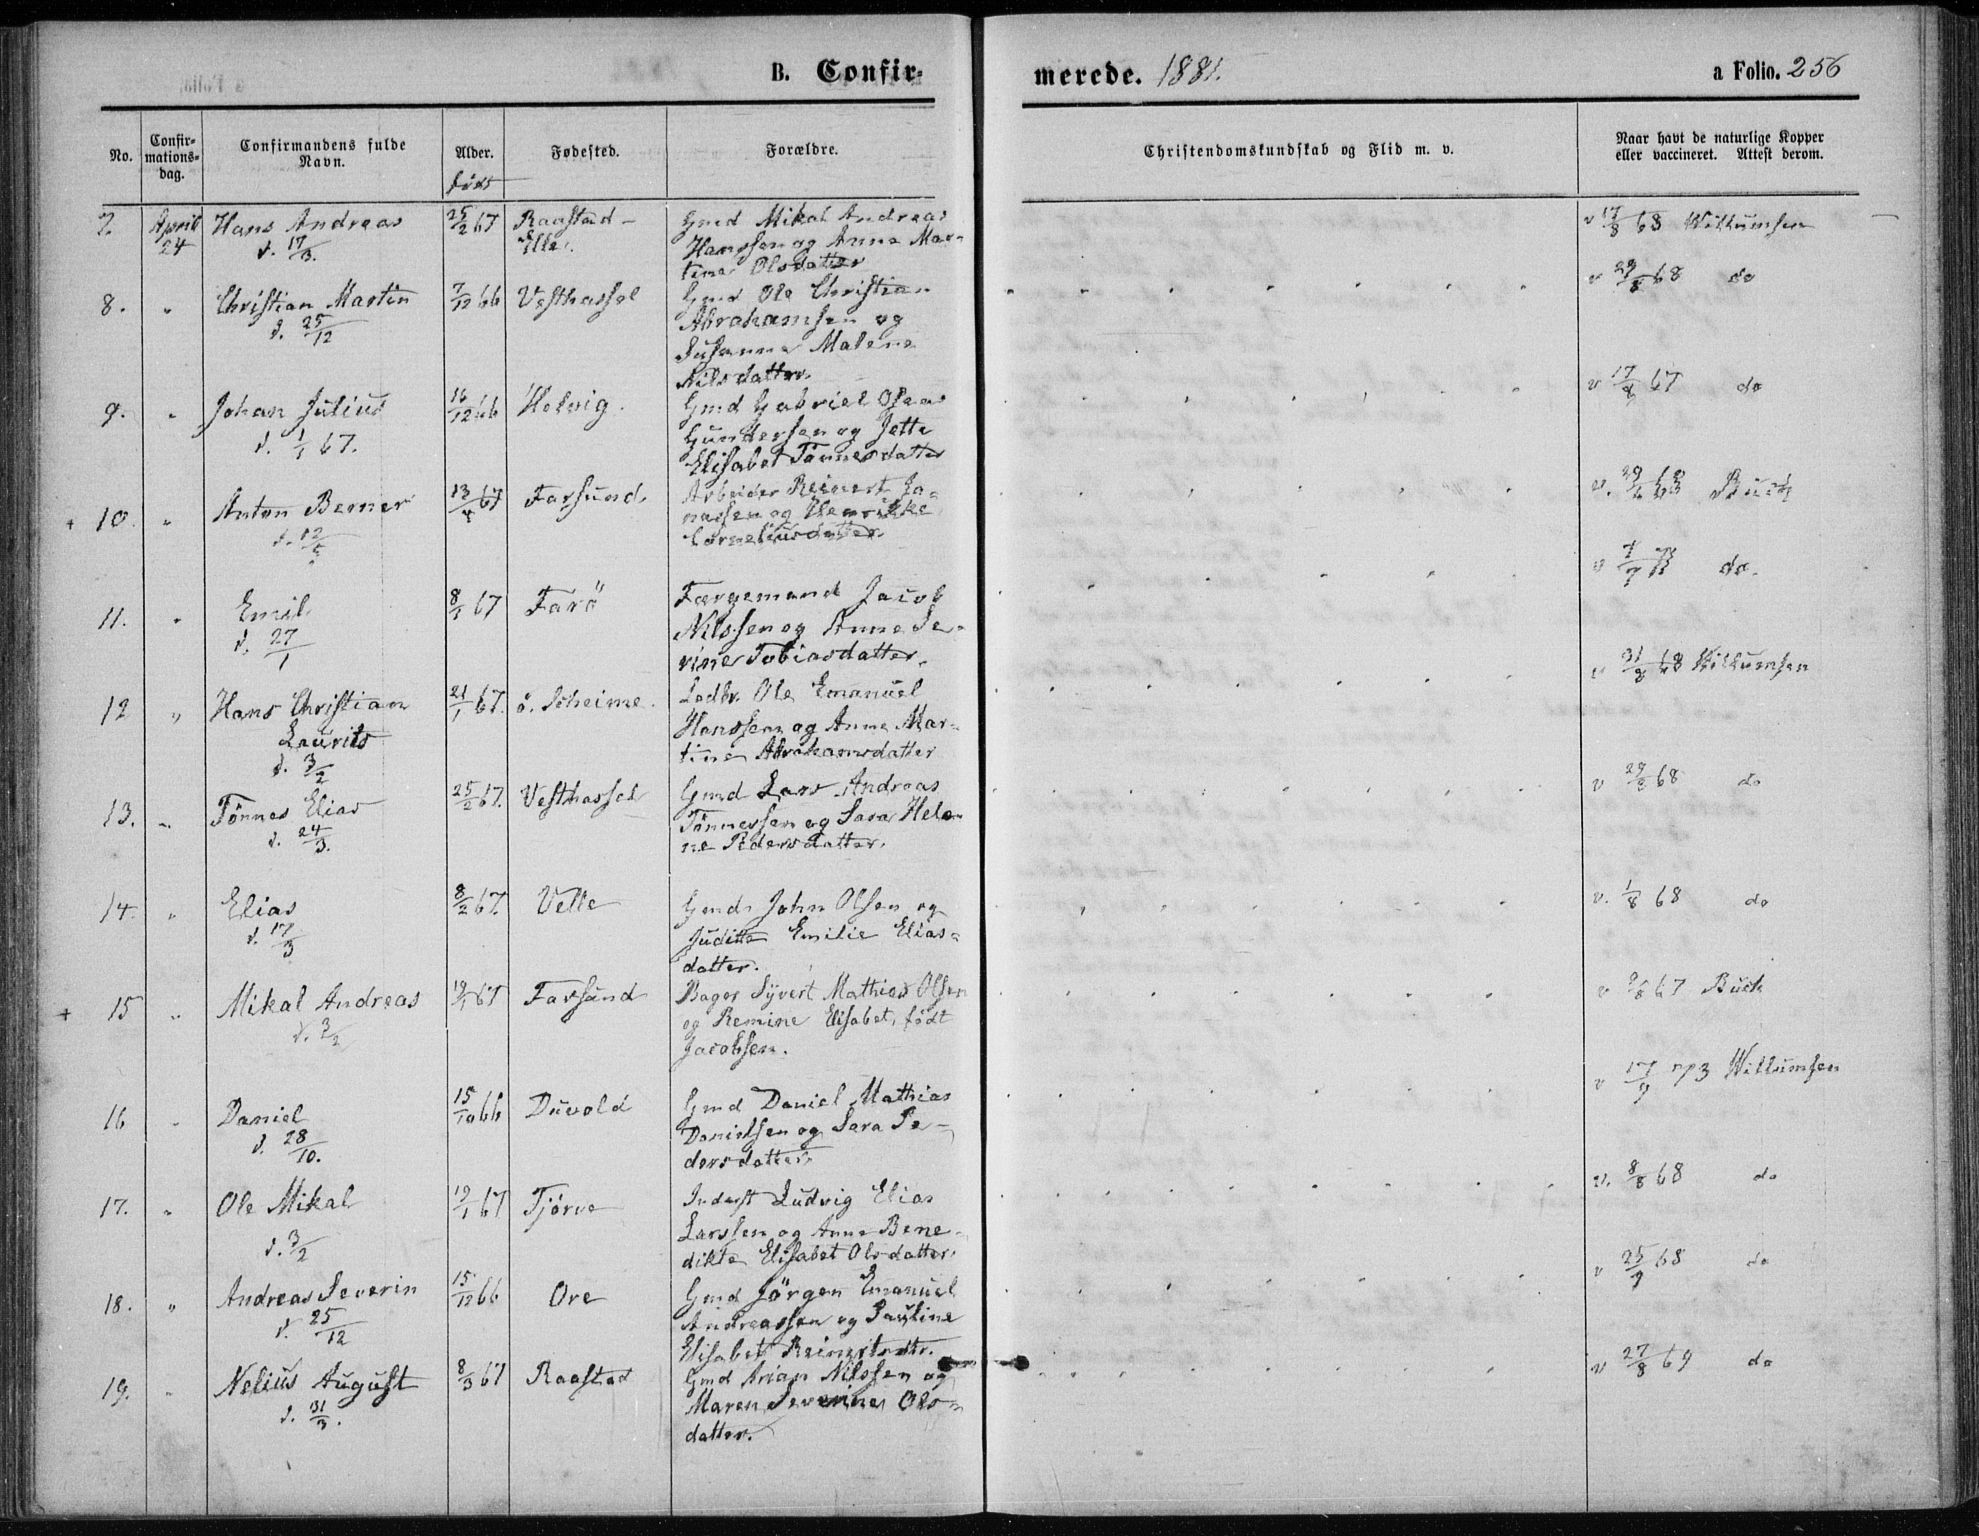 B. Confir-
merede. 1881.
a Folio. 256
No.
Confir-
mations-
dag.
Confirmandens fulde
Navn.
Alder.
Fødested.
Forældre.
Christendomskundskab og Flid m. v.
Naar havt de naturlige Kopper
eller vaccineret. Attest derom.
født
7. April 24 Hans Andreas 25/2 67 Raastad- Gmd Mikal Andreas v 17/8 68 Willumsen
d. 17/3. Hanssen og Anne Mar-
tine Olsdatter
8. " Christian Martin 7/12 66 Vesthassel Gmd Ole Christian v 29/8 68 do
d. 25/12 Abrahamsen og
Susanne Malene
Nilsdatter.
9. " Johan Julius 16/12 66 Helvig. Gmd Gabriel Olaus v 17/9 67 do
d. 1/1 67. Gundersen og Jette
Elisabet Tønnesdatter
+ 10. " Anton Berner 13/4 67 Farsund. Arbeider Reinert Jo-
nassen og Henrikke
Corneliusdatter.
11. " Emil 8/1 67 Farö Færgemand Jacob do.
d. 27/1 Nilssen og Anne Se-
rine Tobiasdatter.
12 " Hans Christian 21/1 67. ö. Skeime. Ledbr. Ole Emanuel v 31/8 68 Willumsen
Laurits Hanssen og Anne Mar-
d. 3/2 tine Abrahamsdatter
13. " Tönnes Elias 25/2 67. Vesthassel Gmd Lars Andreas v 29/8 68 do
d. 24/3. Tönnessen og Sara Hele-
ne Pedersdatter.
14. " Elias 8/2 67. Velle Gmd. John Olsen og v. 1/8 68 do
d. 17/3 Juditte Emilie Elias-
datter.
+ 15 " Mikal Andreas 19/1 67 Farsund Bager Syvert Mathias Olsen
d. 3/2 og Remine Elisabet, født
Jacobsen.
16 " Daniel 15/10 66 Duvold Gmd Daniel Mathias v 17/9 73 Willumsen
d. 28/10. Danielsen og Sara Pe-
dersdatter.
17. " Ole Mikal 19/1 67 Tjørve Inderst Ludvig Elias v. 8/8 68 do
d. 3/2 Larssen og Anne Bene-
dikte Elisabet Olsdatter.
18. " Andreas Severin 15/12 66 Ore Gmd Jörgen Emanuel v 25/9 68 do
d. 25/12 Andreassen og Pauline
Elisabet Reinertsdtr.
19. " Nelius August 8/3 67 Raastad Gmd Arian Nilssen og v 27/8 69 do
d. 31/3. Maren Severine Ols-
datter.